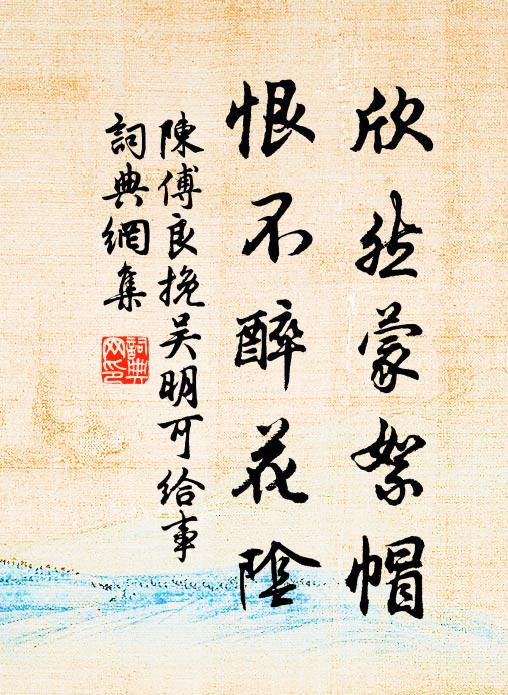 欣然蒙絮帽
恨不醉花陰
陳傅良挽吴明可给事
詞典網集
詞典網印